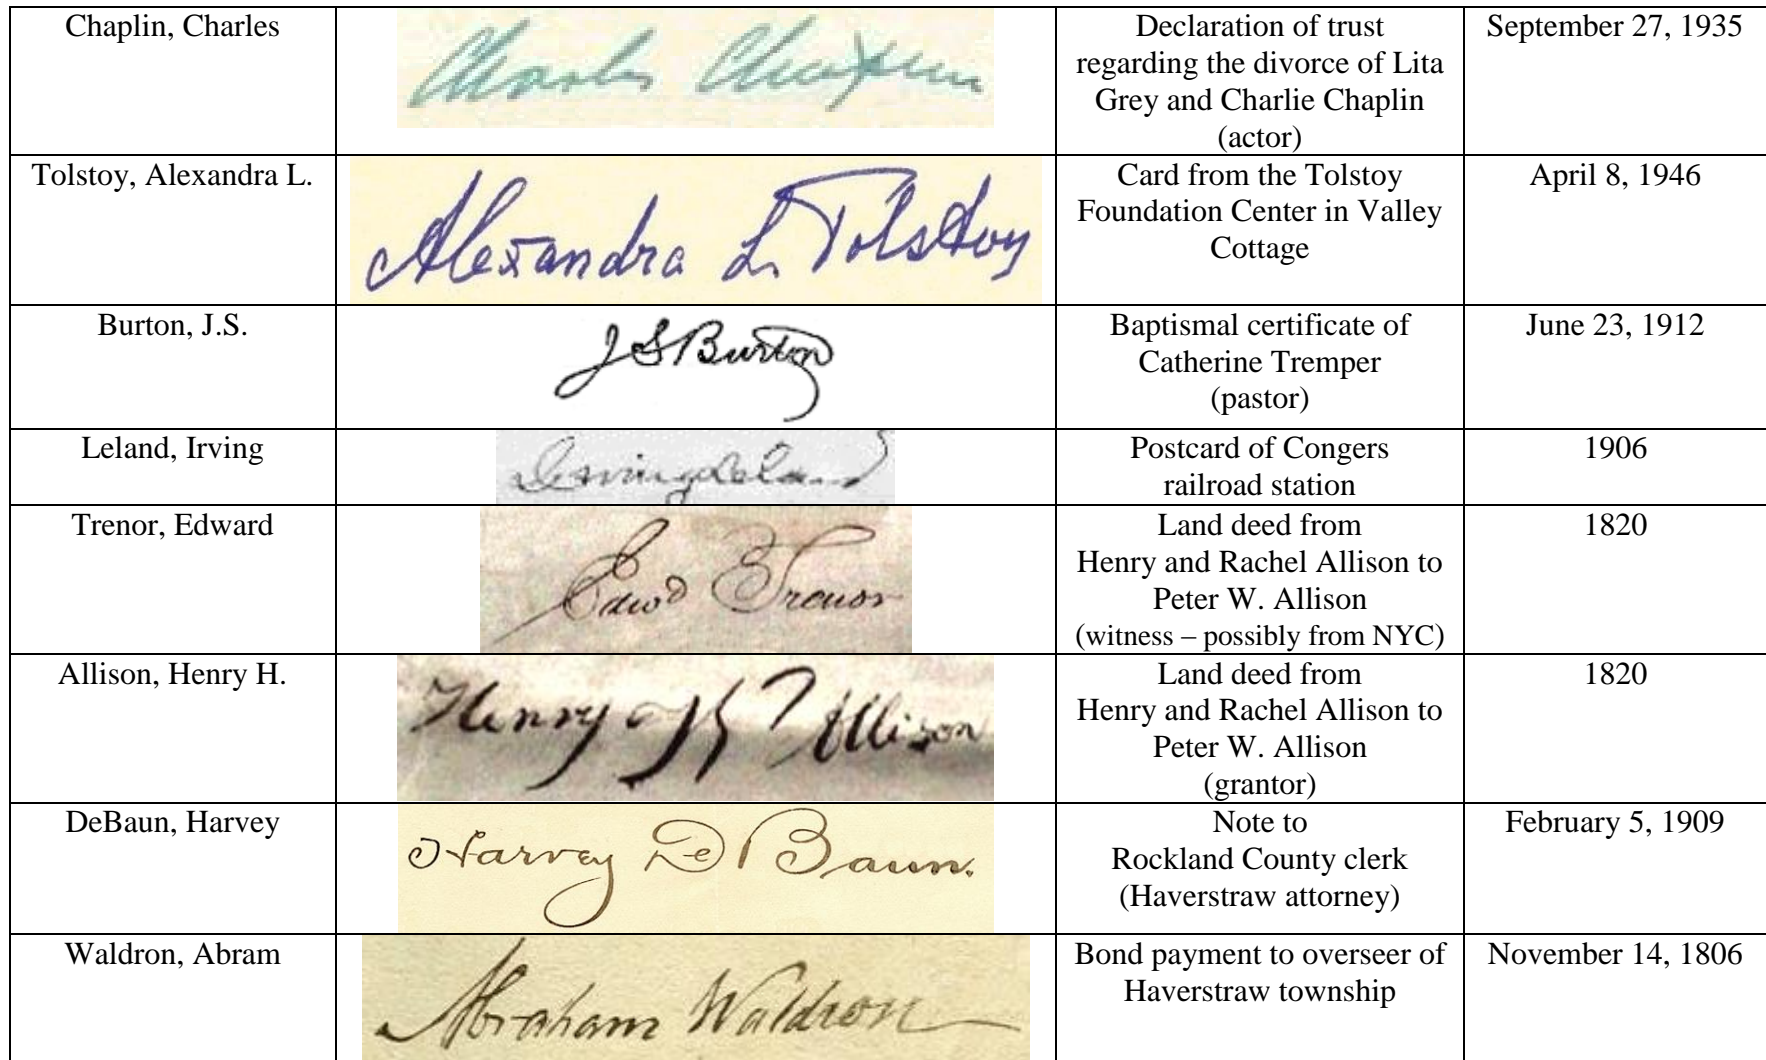 Chaplin, Charles
Charles Chaplin
Declaration of trust
regarding the divorce of Lita
Grey and Charlie Chaplin
(actor)
September 27, 1935
Tolstoy, Alexandra L.
Alexandra L. Tolstoy
Card from the Tolstoy
Foundation Center in Valley
Cottage
April 8, 1946
Burton, J.S.
J S Burton
Baptismal certificate of
Catherine Tremper
(pastor)
June 23, 1912
Leland, Irving
Irving Leland
Postcard of Congers
railroad station
1906
Trenor, Edward
Edwd Trenor
Land deed from
Henry and Rachel Allison to
Peter W. Allison
(witness – possibly from NYC)
1820
Allison, Henry H.
Henry H Allison
Land deed from
Henry and Rachel Allison to
Peter W. Allison
(grantor)
1820
DeBaun, Harvey
Harvey De Baun.
Note to
Rockland County clerk
(Haverstraw attorney)
February 5, 1909
Waldron, Abram
Abraham Waldron
Bond payment to overseer of
Haverstraw township
November 14, 1806